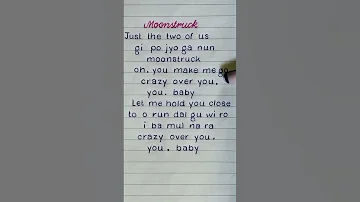 Moonstruck
Just the two of us
gi po jyo ga nun
moonstruck
oh. you make me go
crazy over you.
you. baby
Let me hold you close
to o run dal gu wi ro
i ba mul na ra
crazy over you.
you. baby